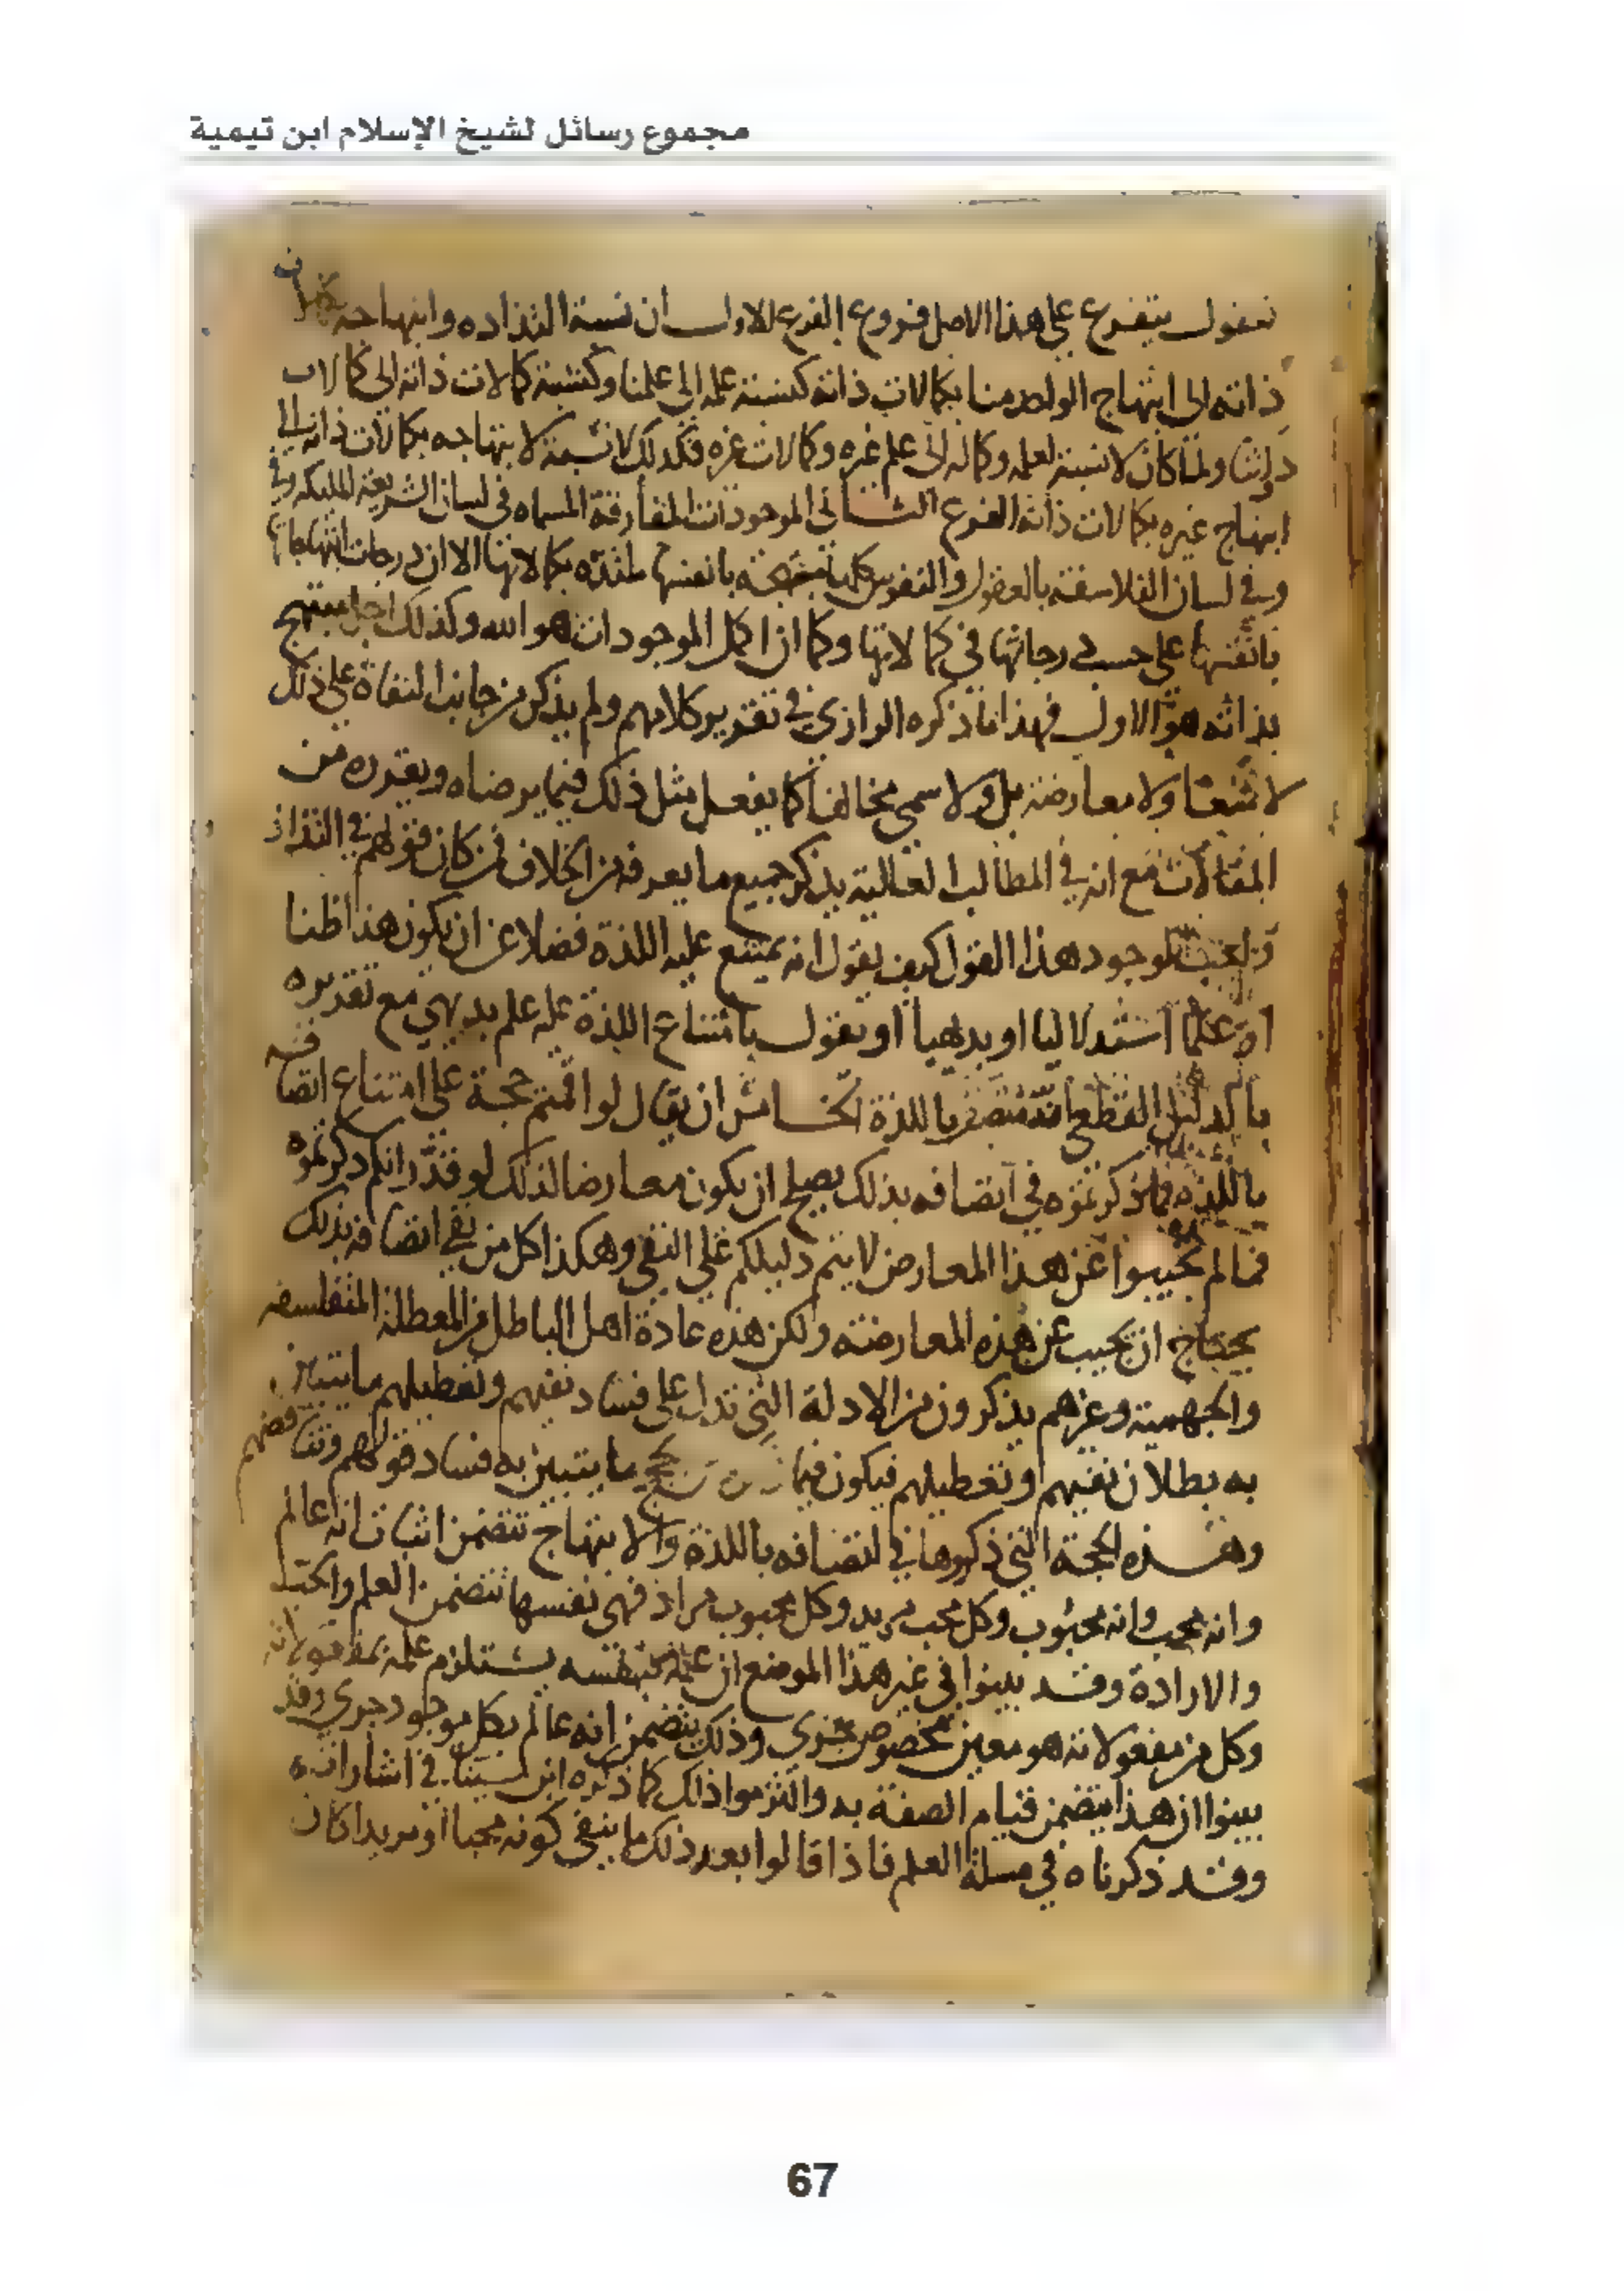 مجموع رسائل لشيخ الإسلام ابن تيمية
نقول يتفرع على هذا الاصل فروع الفرع الاول ان نسبة التذاذه وابتهاجه بكمالات
ذاته الى ابتهاج الواحد منا بكمالات ذاته كنسبة علمه الى علمنا وكنسبة كمالات ذاته الى كمالات
ذواتنا ولما كان لا نسبة لعلمه وكماله الى علم غيره وكمالات غيره فكذلك لا نسبة لابتهاجه بكمالات ذاته الى
ابتهاج غيره بكمالات ذاته الفرع الثاني الموجودات المفارقة المسماه في لسان الشريعة بالمليكه وفي
وفي لسان الفلاسفة بالعقول والنفوس كلها مبتهجة بانفسها ملتذه بكمالاتها الا ان درجات ابتهاجاتها
بانفسها على حسب درجاتها في كمالاتها وكما ان اكمل الموجودات هو الله وكذلك اجل مبتهج
بذاته هو الاول فهذا ما ذكره الرازي في تقرير كلامهم ولم يذكر من جانب النفاة على ذلك
لا منعا ولا معارضة بل ولا سمى مخالفا كما يفعل مثل ذلك فيما يرضاه ويقرره من
المقالات مع انه في المطالب العالية يذكر جميع ما يعرفه من الخلاف فمن كان قولهم في التذاذ
لوجود هذا القول كيف يقول انه يمتنع عليه اللذة فضلا عن ان يكون هذا ظنا
او علما استدلاليا او بديهيا او يقول بامتناع اللذة عليه علم بديهي مع تقريره
بالدليل القطعي انه متصف باللذة الخامس ان يقال لو اقمتم حجة على امتناع اتصافه
باللذه فما ذكرتموه في اتصافه بذلك يصلح ان يكون معارضا لذلك لو قدر انكم ذكرتموه
فما لم تجيبوا عن هذا المعارض لا يتم دليلكم على النفي وهكذا كل من نفى اتصافه بذلك
يحتاج ان يجيب عن هذه المعارضة ولكن هذه عادة اهل الباطل من المعطلة المتفلسفه
والجهمية وغيرهم يذكرون من الادلة التي تدل على فساد نفيهم وتعطيلهم ما يتبين
به بطلان نفيهم وتعطيلهم فيكون فيما ما يتبين به فساد قولهم وتناقضهم
وهذه الحجة التي ذكروها في اتصافه باللذة والابتهاج تتضمن اثبات انه عالم
وانه محب وانه محبوب وكل محب مريد وكل محبوب مراد فهي نفسها تتضمن العلم والحب
والارادة وقد بينوا في غير هذا الموضع ان علمه بنفسه يستلزم علمه بمفعولاته
وكل من مفعولاته هو معين مخصوص جزي وذلك يتضمن انه عالم بكل موجود جزي وقد
بينوا ان هذا يتضمن قيام الصفة به والتزموا ذلك كما ذكره ابن سينا في اشاراته
وقد ذكرناه في مسلة العلم فاذا قالوا بعد ذلك ما ينفي كونه محبا او مريدا كان
67